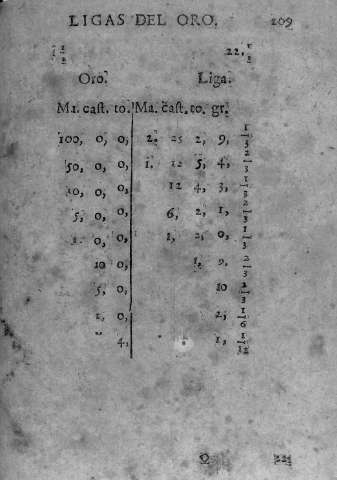 LIGAS DEL ORO. 209
1 1/2 22, 1/2
Oro. Liga.
Ma. cast. to. Ma. cast. to. gr.
100, 0, 0, 2. 25 2, 9, 1/3
50, 0, 0, 1, 12 5, 4, 2/3
10, 0, 0, 12 4, 3, 1/3
5, 0, 0, 6, 2, 1, 2/3
1. 0, 0, 1, 2, 0, 1/3
10 0, 1, 9, 2/3
5, 0, 10 2/3
1, 0, 2, 1/6
4, 1, 1/12